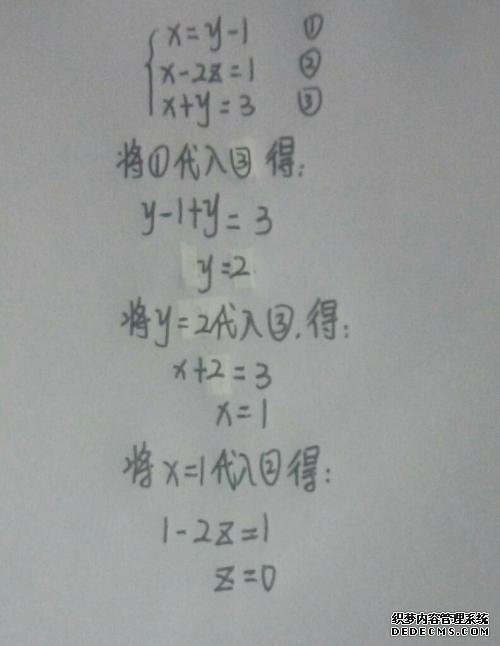 x=y-1 ①
x-2z=1 ②
x+y=3 ③
将①代入③得:
y-1+y=3
y=2
将y=2代入③,得:
x+2=3
x=1
将x=1代入②得:
1-2z=1
z=0
织梦内容管理系统
DEDECMS.COM